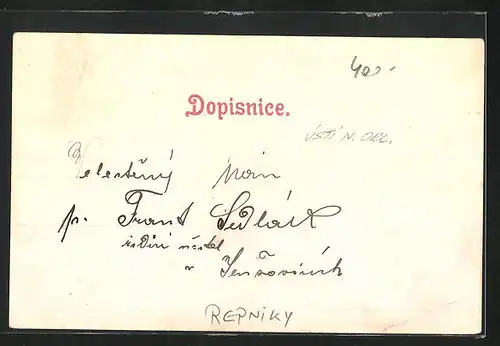 400.-
Dopisnice.
ÚSTÍ N. ORL.
Velectěný pán
p. Frant Sedlák
řídící učitel
v
REPNÍKY